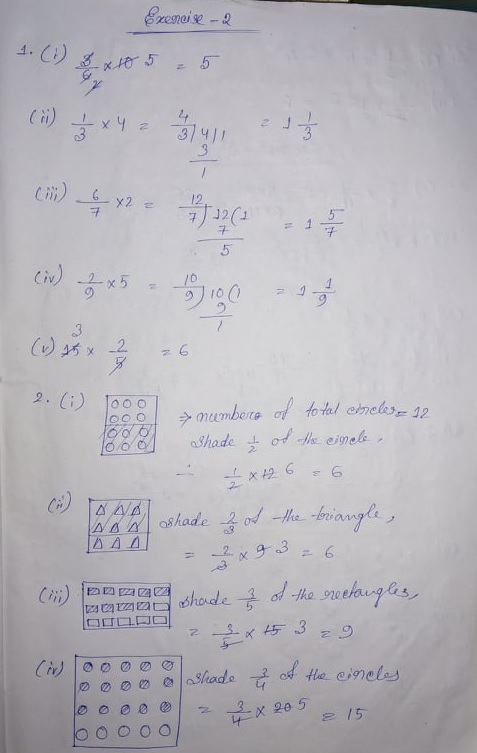 Exercise - 2
1. (i) 3/6 2 × 10 5 = 5
(ii) 1/3 × 4 = 4/3 3)4(1 3 1 = 1 1/3
(iii) 6/7 × 2 = 12/7 7)12(1 7 5 = 1 5/7
(iv) 2/9 × 5 = 10/9 9)10(1 9 1 = 1 1/9
(v) 15 3 × 2/5 = 6
2. (i) ⇒ numbers of total circles = 12
Shade 1/2 of the circle.
∴ 1/2 × 12 6 = 6
(ii) shade 2/3 of the triangle,
= 2/3 × 9 3 = 6
(iii) shade 3/5 of the rectangles,
= 3/5 × 15 3 = 9
(iv) shade 3/4 of the circles
= 3/4 × 20 5 = 15